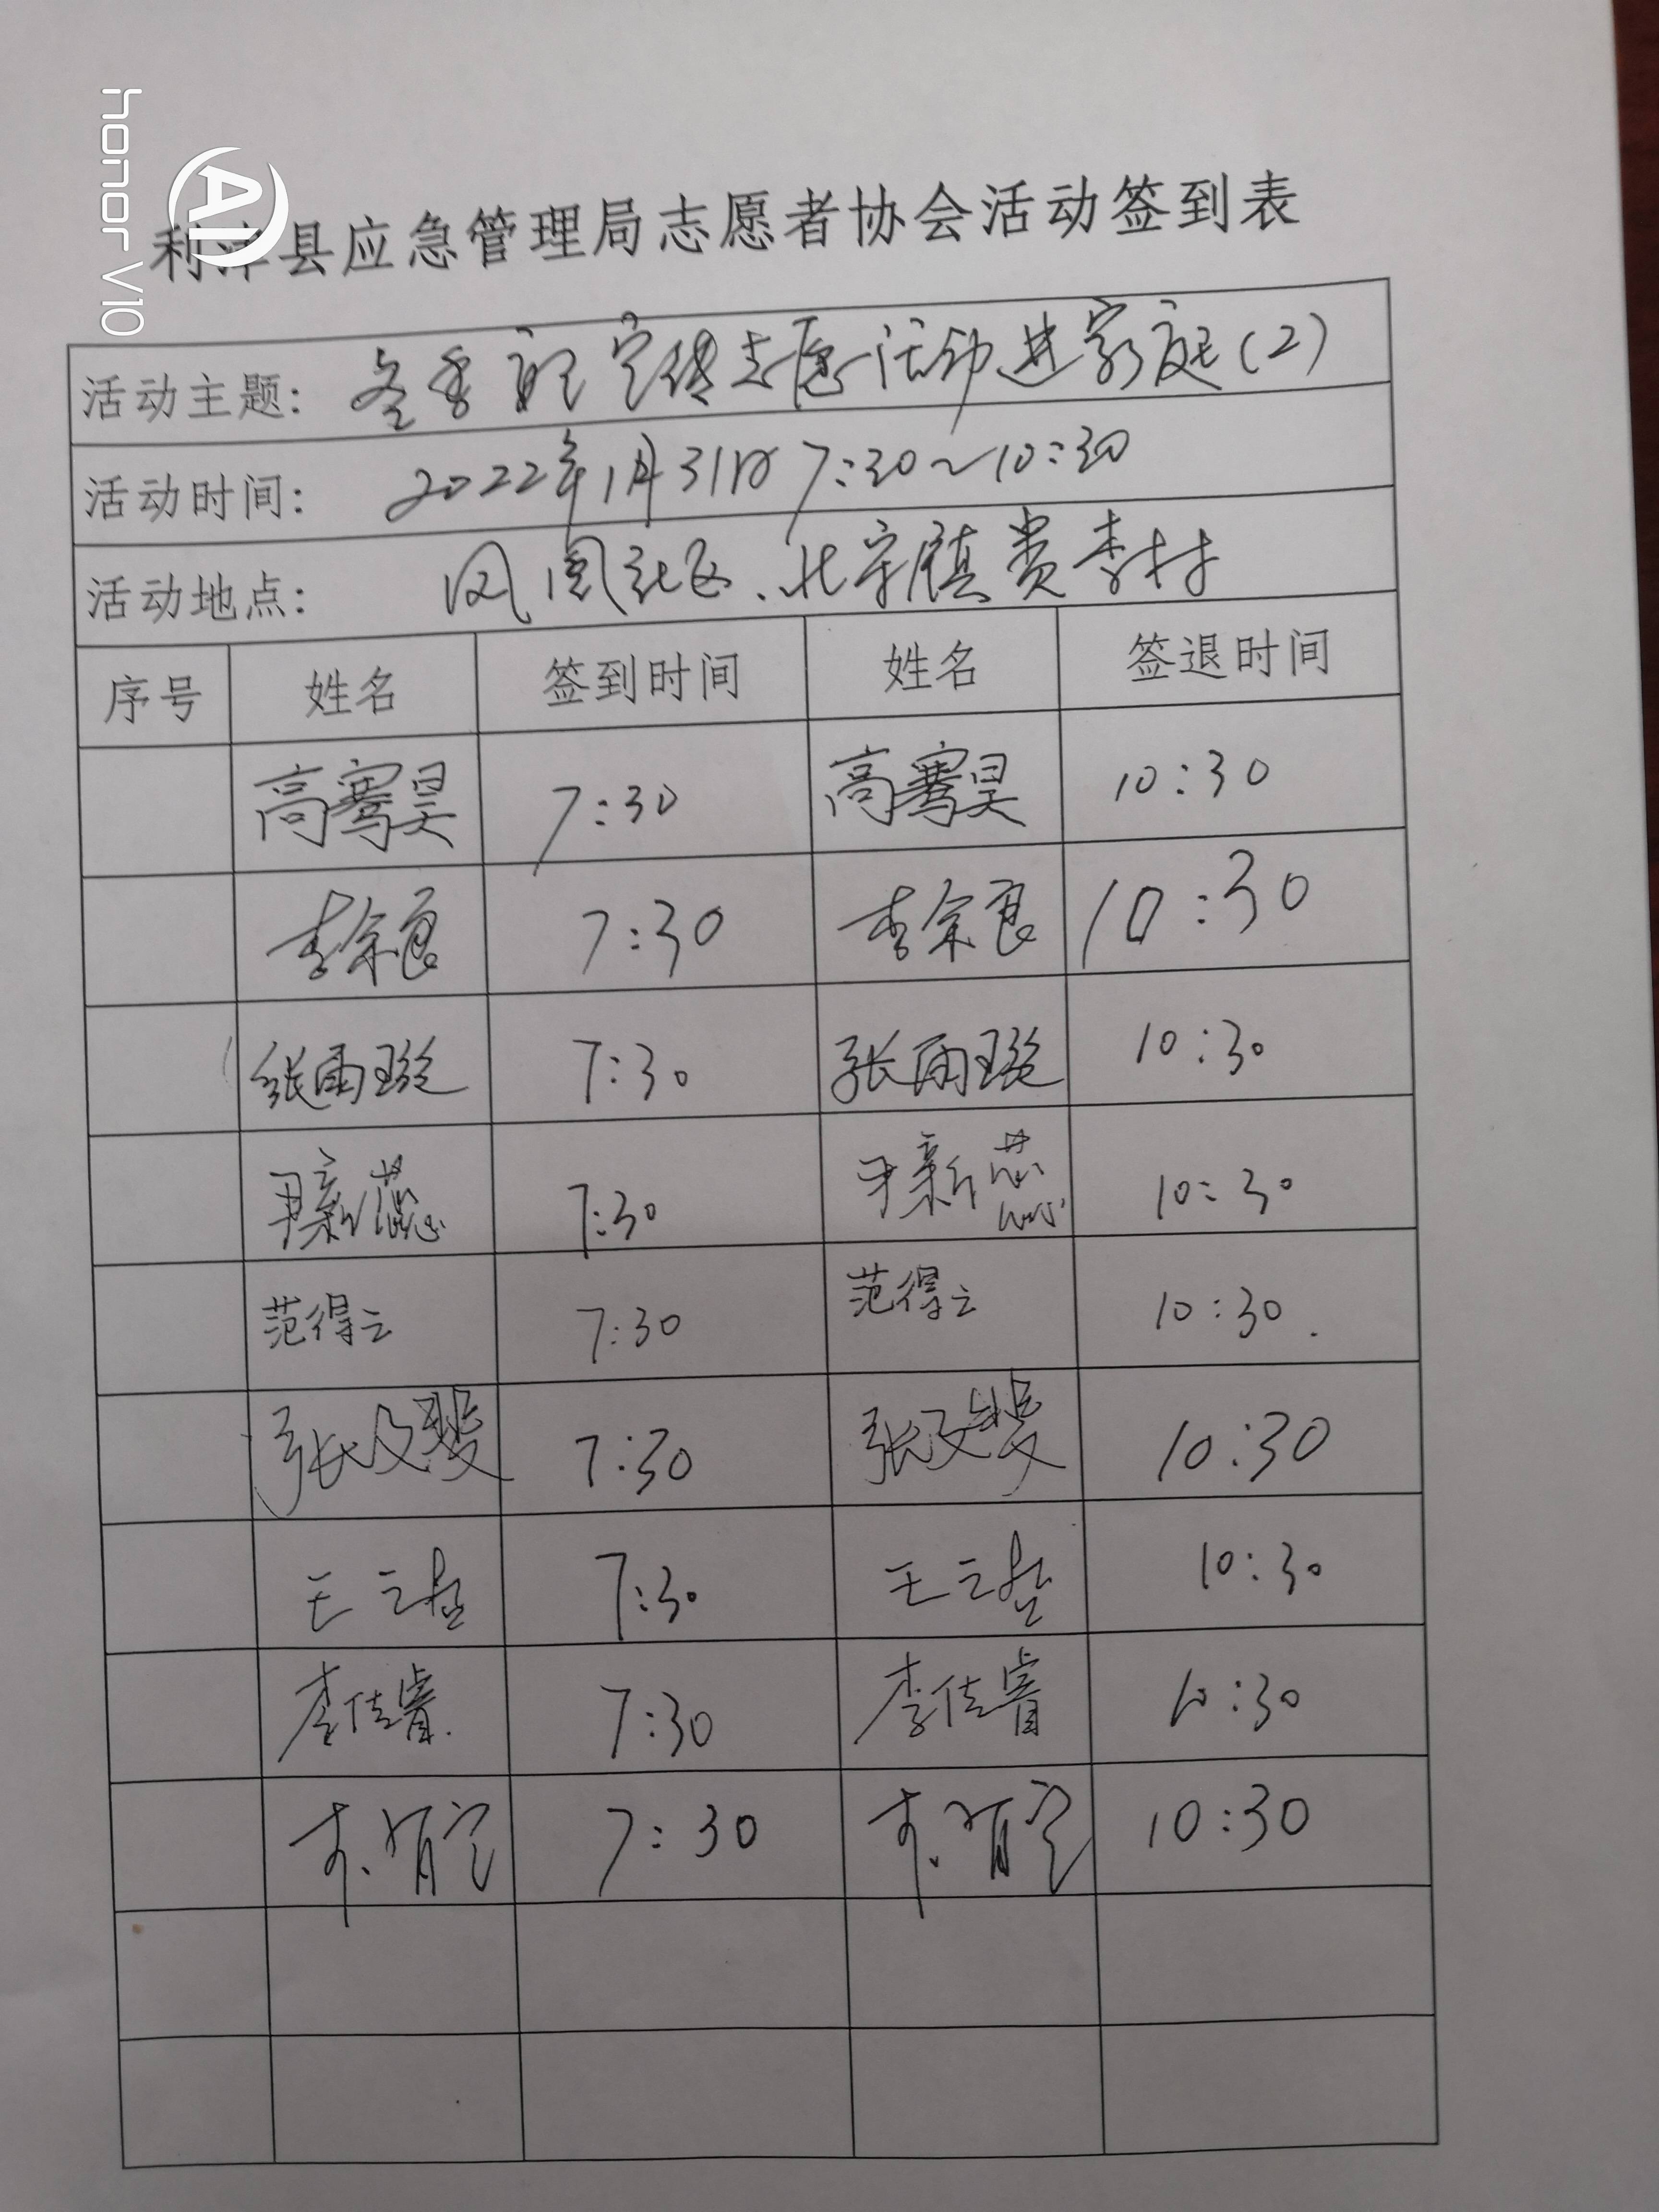 honor V10
AI
利津县应急管理局志愿者协会活动签到表
活动主题: 冬季 宣传志愿活动进家庭(2)
活动时间: 2022年1月31日 7:30~10:30
活动地点: 凤凰社区、北宋镇贵李村
序号 姓名 签到时间 姓名 签退时间
高骞昊 7:30 高骞昊 10:30
李余良 7:30 李余良 10:30
张雨璇 7:30 张雨璇 10:30
尹新蕊 7:30 尹新蕊 10:30
范得云 7:30 范得云 10:30
张文斐 7:30 张文斐 10:30
王云 7:30 王云 10:30
李佳睿 7:30 李佳睿 10:30
7:30 10:30